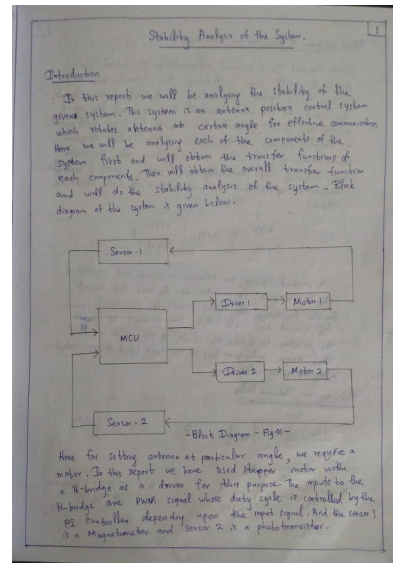 1
Stability Analysis of the System.
Introduction
In this report we will be analysing the stability of the
given system. This system is an antenna position control system
which rotates antenna at certain angle for effective communication.
Here we will be analysing each of the components of the
system first and will obtain the transfer functions of
each components. Then will obtain the overall transfer function
and will do the stability analysis of the system. Block
diagram of the system is given below.
Sensor-1
Driver 1
Motor 1
MCU
Driver 2
Motor 2
Sensor-2
-Block Diagram - Fig-01-
Here for setting antenna at particular angle, we require a
motor. In this report we have used stepper motor with
a H-bridge as a driver for this purpose. The inputs to the
H-bridge are PWM signal whose duty cycle is controlled by the
PI controller depending upon the input signal. And the sensor 1
is a Magnetometer and sensor 2 is a phototransistor.